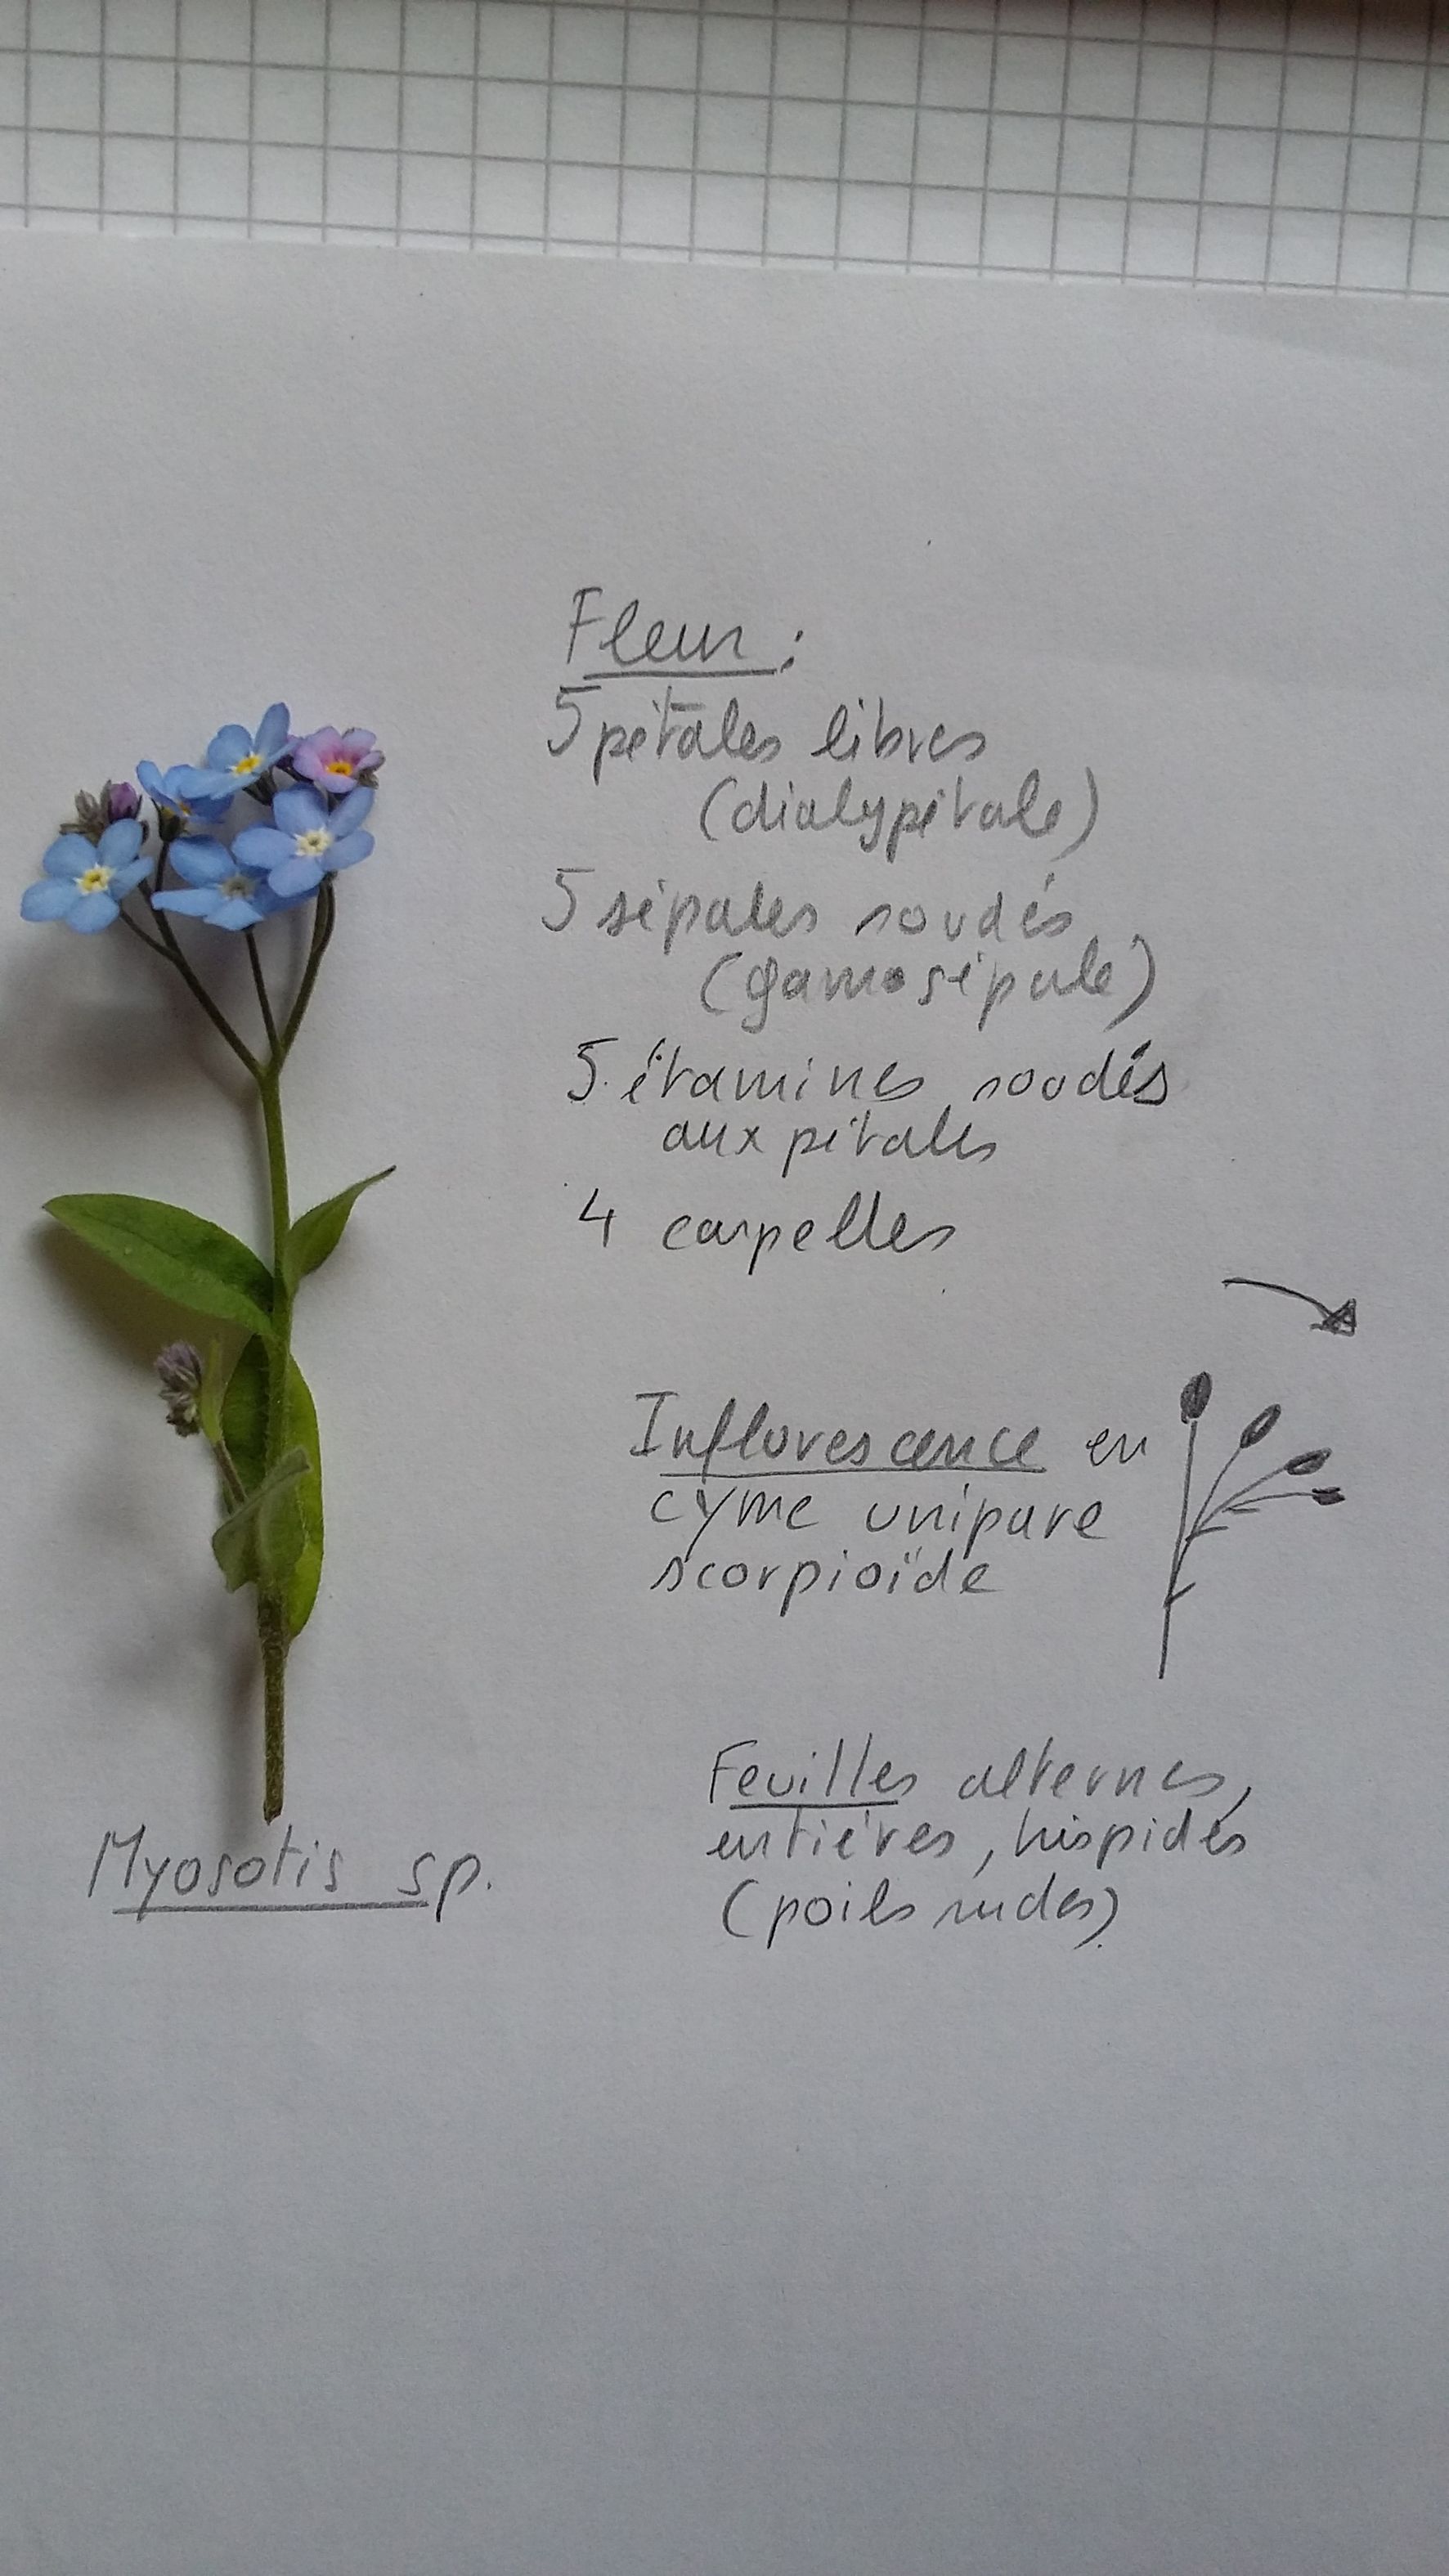 Fleur :
5 pétales libres
(dialypétale)
5 sépales soudés
(gamosépale)
5 étamines soudés
aux pétales
4 carpelles
Inflorescence en
cyme unipare
scorpioïde
Feuilles alternes,
entières, hispides
(poils rudes)
Myosotis sp.